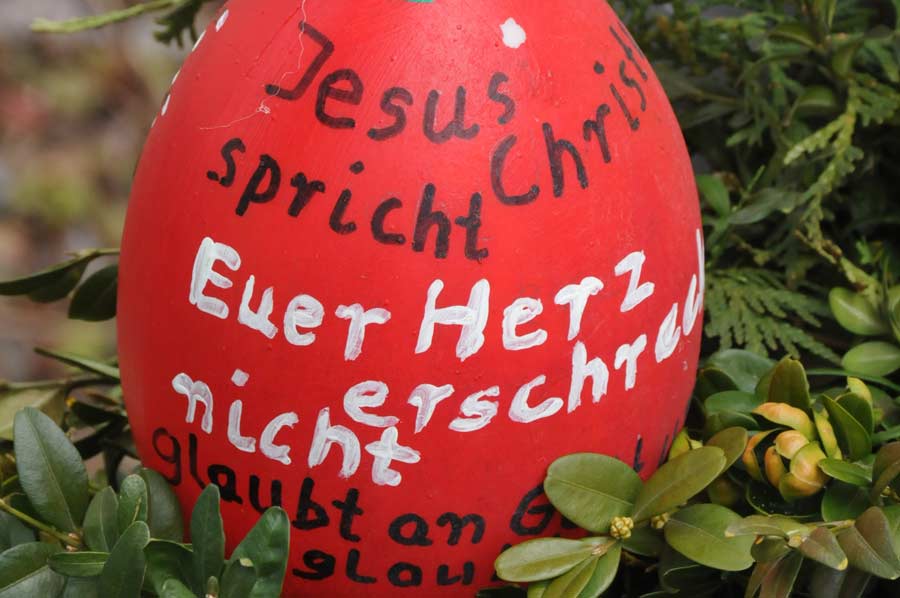 Jesus Christ
spricht
Euer Herz
erschreck
nicht
glaubt an G
glau